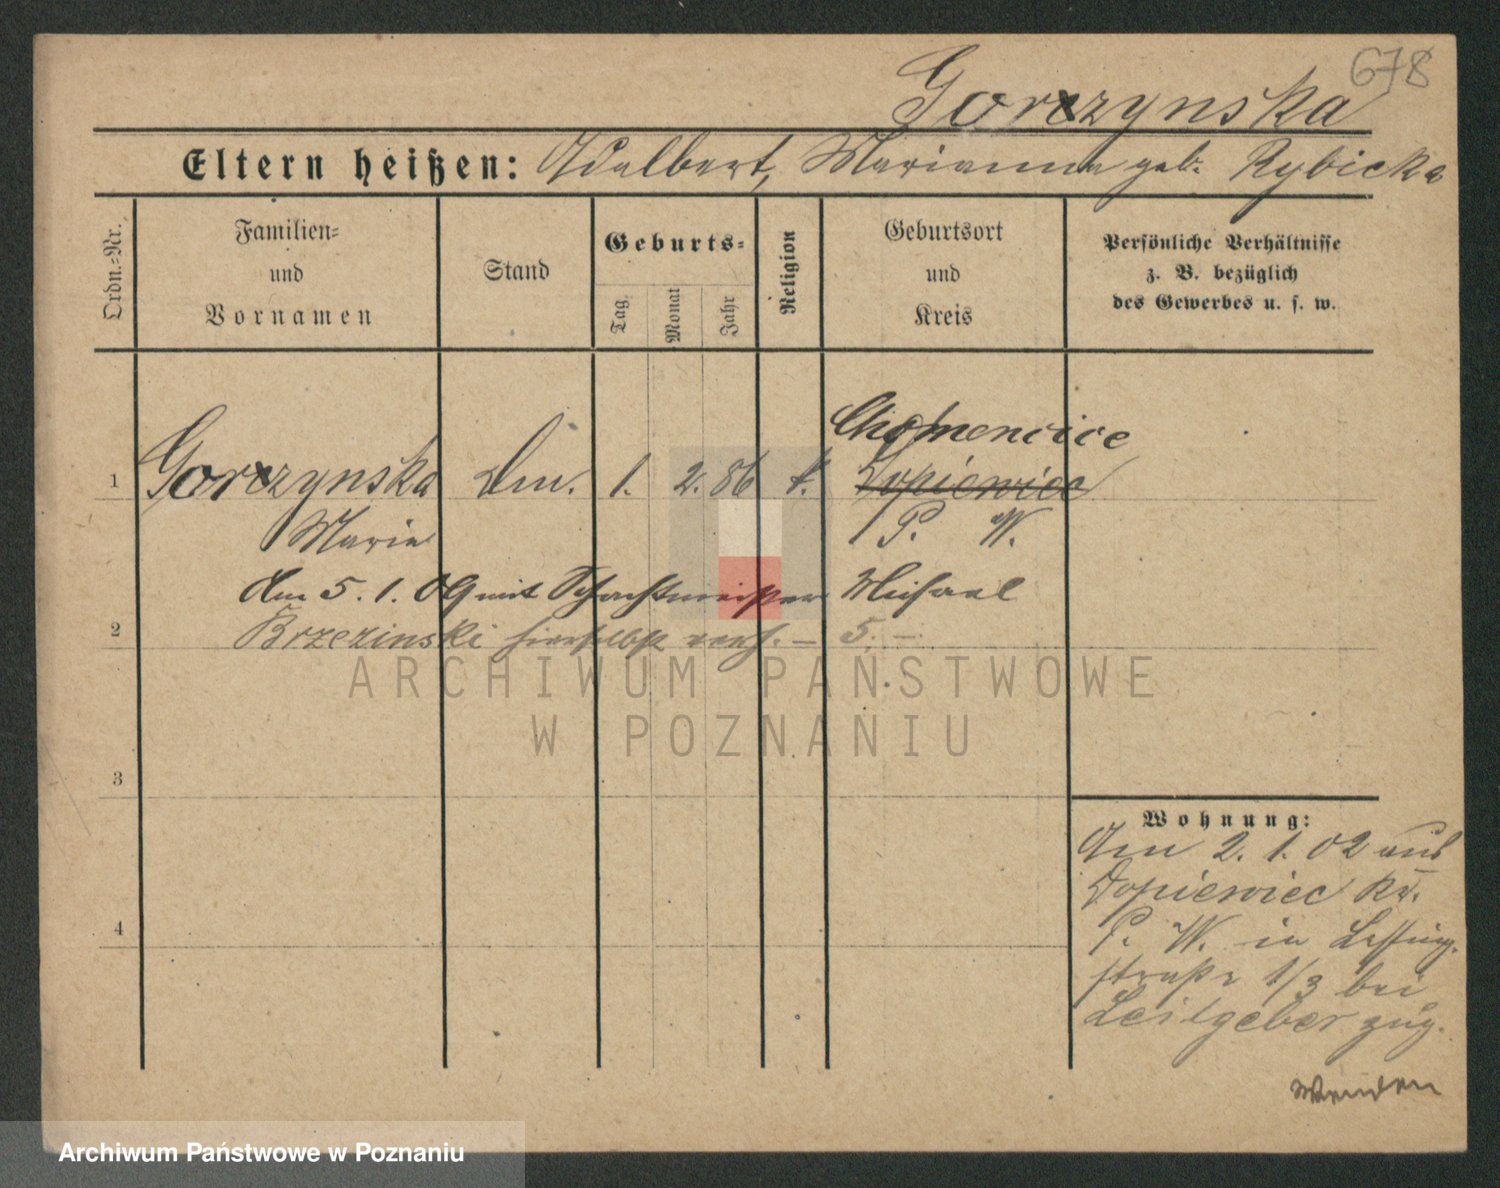 678
Gorczynska
Eltern heißen: Adalbert, Marianna geb. Rybicka
Ordn.-Nr.
Familien-
und
Vornamen
Stand
Geburts-
Tag.
Monat
Jahr
Religion
Geburtsort
und
Kreis
Persönliche Verhältnisse
z. B. bezüglich
des Gewerbes u. s. w.
Chomencice
1 Gorczynska 1. 2. 86 k. Dopiewiec
Marie P. W.
Am 5. 1. 09 mit Schachtmeister Michael
2 Brzezinski hierselbst verh. – 5. –
ARCHIWUM PAŃSTWOWE
W POZNANIU
3
4
Wohnung:
Am 2. 1. 02 aus
Dopiewiec Kr.
P. W. in Lessing-
straße 1/3 bei
Leitgeber zug.
Wenden
Archiwum Państwowe w Poznaniu